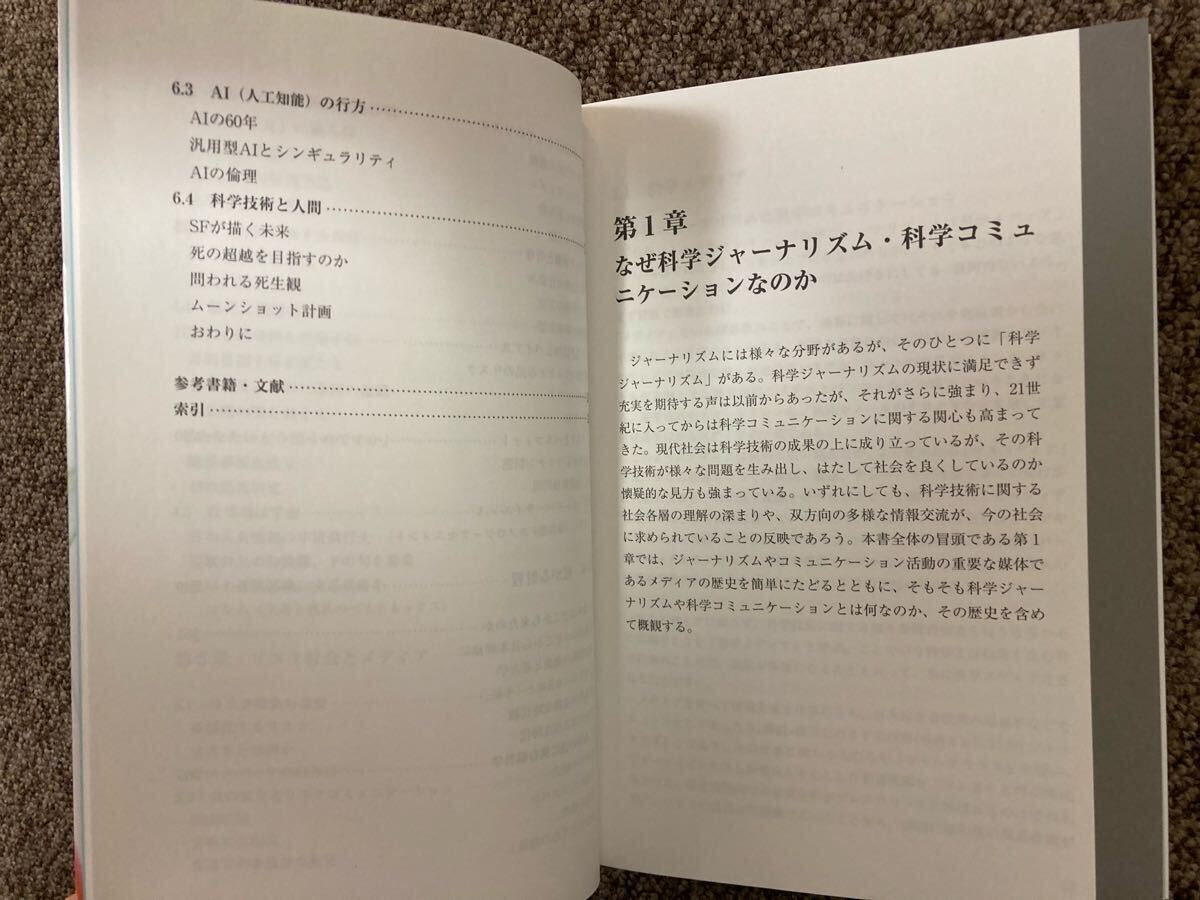 6.3 AI（人工知能）の行方
AIの60年
汎用型AIとシンギュラリティ
AIの倫理
6.4 科学技術と人間
SFが描く未来
死の超越を目指すのか
問われる死生観
ムーンショット計画
おわりに
参考書籍・文献
索引
第1章
なぜ科学ジャーナリズム・科学コミュ
ニケーションなのか
ジャーナリズムには様々な分野があるが、そのひとつに「科学
ジャーナリズム」がある。科学ジャーナリズムの現状に満足できず
充実を期待する声は以前からあったが、それがさらに強まり、21世
紀に入ってからは科学コミュニケーションに関する関心も高まって
きた。現代社会は科学技術の成果の上に成り立っているが、その科
学技術が様々な問題を生み出し、はたして社会を良くしているのか
懐疑的な見方も強まっている。いずれにしても、科学技術に関する
社会各層の理解の深まりや、双方向の多様な情報交流が、今の社会
に求められていることの反映であろう。本書全体の冒頭である第1
章では、ジャーナリズムやコミュニケーション活動の重要な媒体で
あるメディアの歴史を簡単にたどるとともに、そもそも科学ジャー
ナリズムや科学コミュニケーションとは何なのか、その歴史を含め
て概観する。